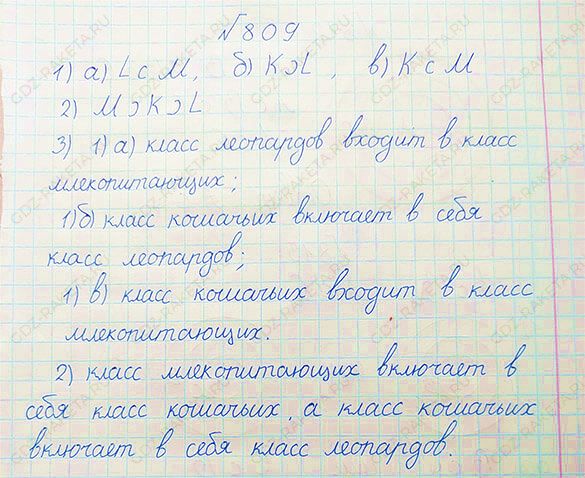 №809
1) а) L ⊂ M, б) K ⊃ L, в) K ⊂ M
2) M ⊃ K ⊃ L
3) 1) а) класс леопардов входит в класс
млекопитающих;
1) б) класс кошачьих включает в себя
класс леопардов;
1) в) класс кошачьих входит в класс
млекопитающих.
2) класс млекопитающих включает в
себя класс кошачьих, а класс кошачьих
включает в себя класс леопардов.
GDZ-RAKETA.RU